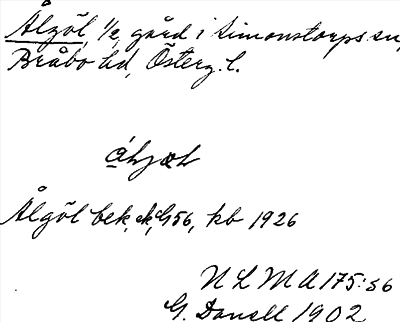 Ålgöl, 1/2, gård i Simonstorps sn,
Bråbo hd, Österg. l.
Ålgöl bek, ek, G56, kb 1926
NLMA 175:56
G. Danell 1902